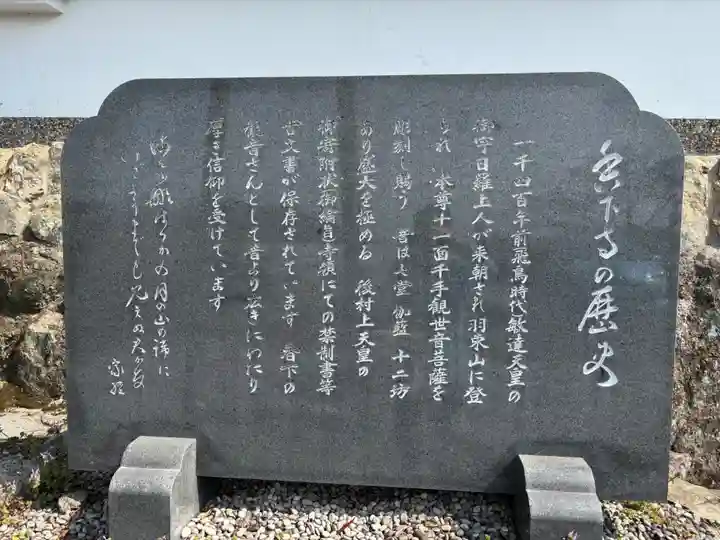 香下寺の歴史
一千四百年前飛鳥時代敏達天皇の
御宇日羅上人が来朝され羽束山に登
られ御本尊十一面千手観世音菩薩を
彫刻し賜う 昔は七堂伽藍 十二坊
あり盛大を極める 後村上天皇の
御寄附状御綸旨寺領にての禁制書等
古文書が保存されています 香下の
観音さんとして昔より広きにわたり
厚き信仰を受けています
の月の山の端に